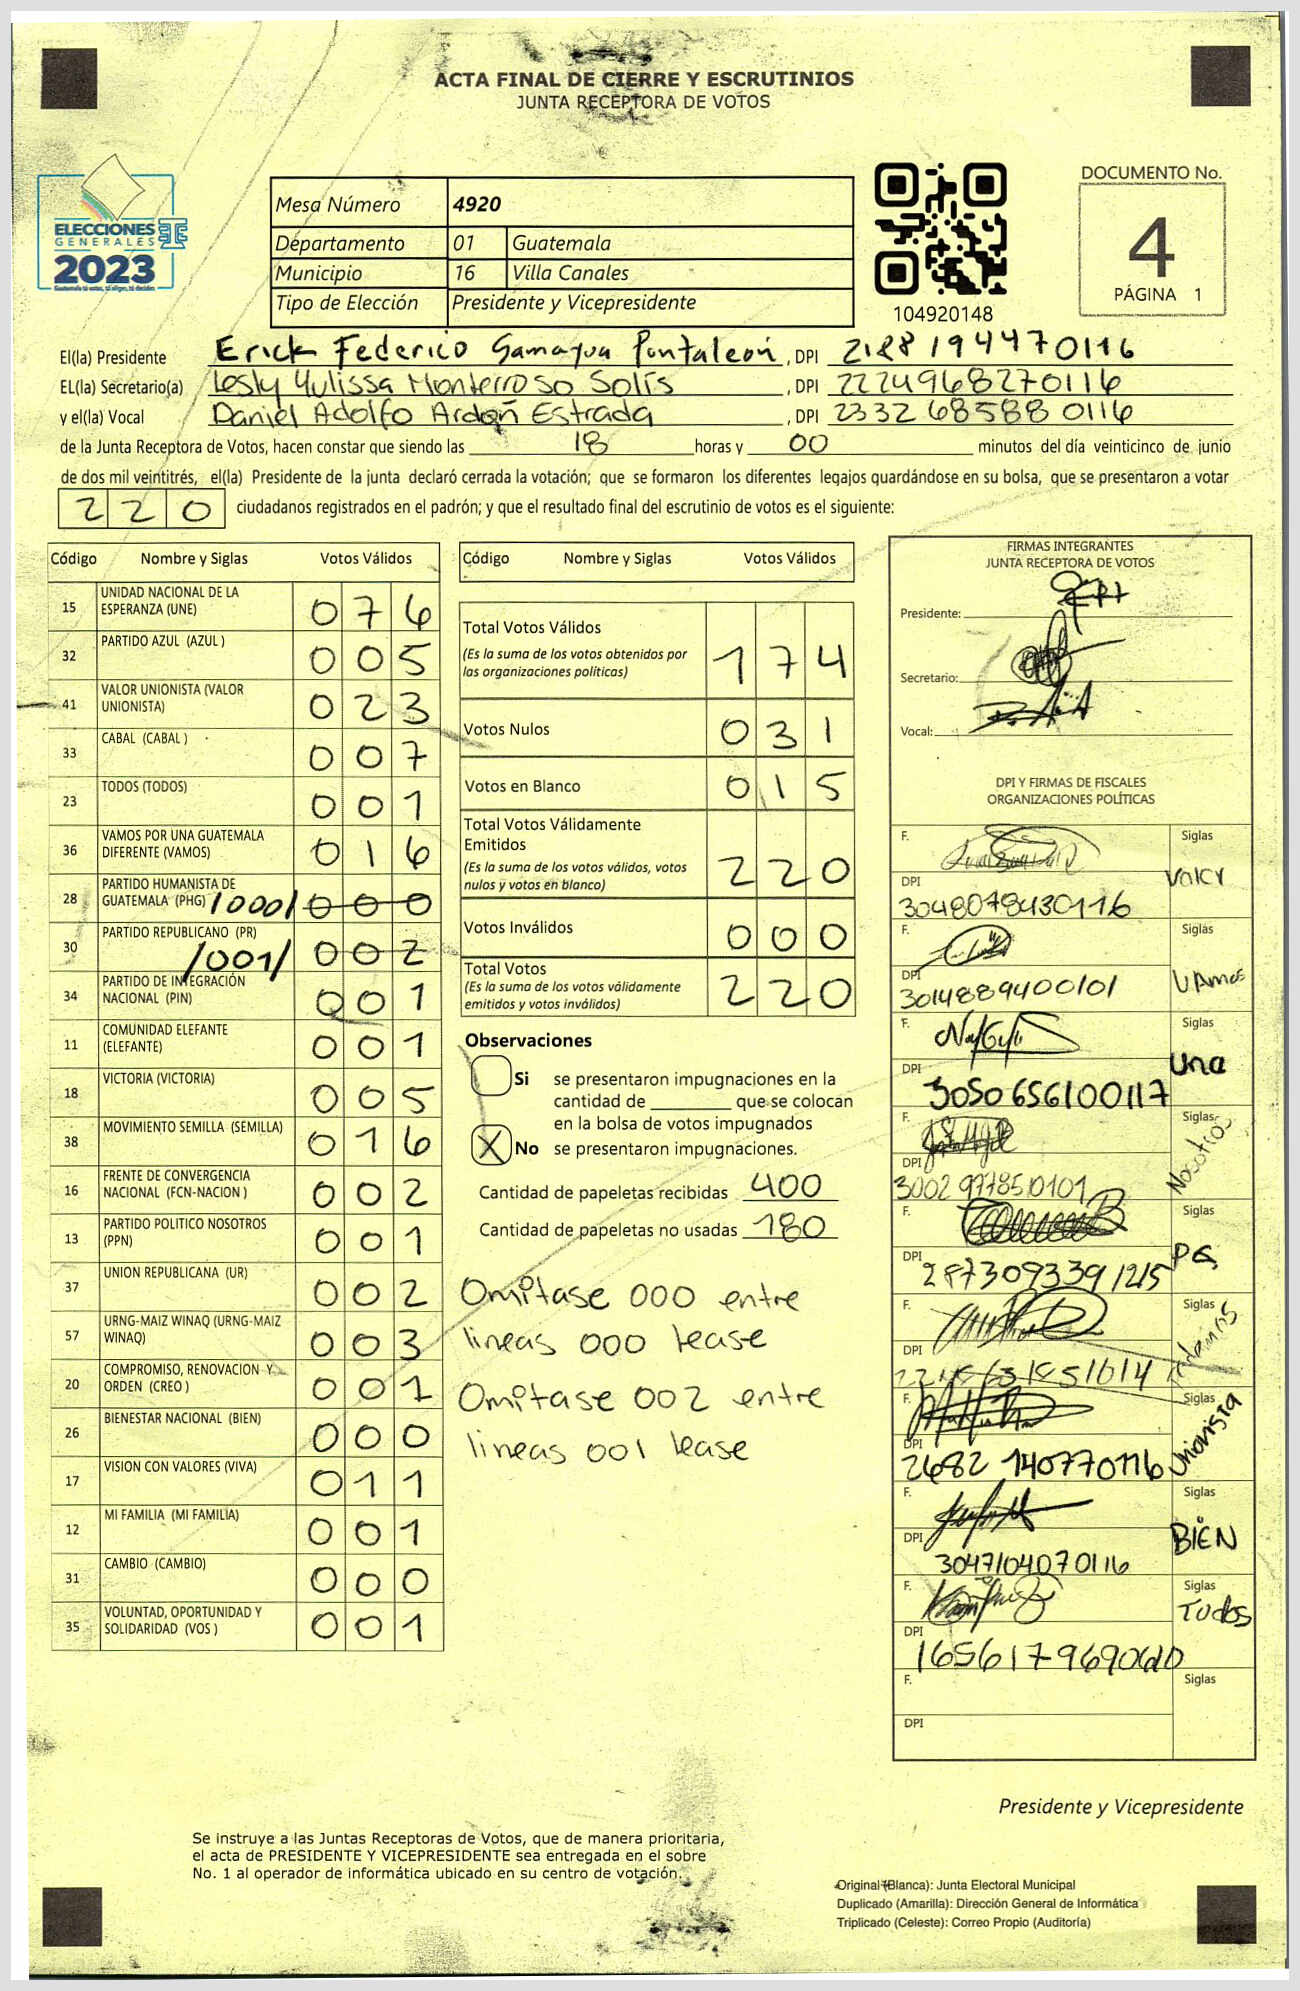 ACTA FINAL DE CIERRE Y ESCRUTINIOS
JUNTA RECEPTORA DE VOTOS
ELECCIONES
GENERALES
2023
Guatemala tú votas, tú eliges, tú decides
Mesa Número 4920
Departamento 01 Guatemala
Municipio 16 Villa Canales
Tipo de Elección Presidente y Vicepresidente
104920148
DOCUMENTO No.
4
PÁGINA 1
El(la) Presidente Erick Federico Gamayua Pontaleón, DPI 2188194470116
EL(la) Secretario(a) Lesly Yulissa Monterroso Solís, DPI 2224968270116
y el(la) Vocal Daniel Adolfo Ardón Estrada, DPI 2332 68588 0116
de la Junta Receptora de Votos, hacen constar que siendo las 18 horas y 00 minutos del día veinticinco de junio
de dos mil veintitrés, el(la) Presidente de la junta declaró cerrada la votación; que se formaron los diferentes legajos guardándose en su bolsa, que se presentaron a votar
220 ciudadanos registrados en el padrón; y que el resultado final del escrutinio de votos es el siguiente:
Código Nombre y Siglas Votos Válidos
15 UNIDAD NACIONAL DE LA ESPERANZA (UNE) 076
32 PARTIDO AZUL (AZUL ) 005
41 VALOR UNIONISTA (VALOR UNIONISTA) 023
33 CABAL (CABAL ) 007
23 TODOS (TODOS) 001
36 VAMOS POR UNA GUATEMALA DIFERENTE (VAMOS) 016
28 PARTIDO HUMANISTA DE GUATEMALA (PHG) /000/ 000
30 PARTIDO REPUBLICANO (PR) /001/ 002
34 PARTIDO DE INTEGRACIÓN NACIONAL (PIN) 001
11 COMUNIDAD ELEFANTE (ELEFANTE) 001
18 VICTORIA (VICTORIA) 005
38 MOVIMIENTO SEMILLA (SEMILLA) 016
16 FRENTE DE CONVERGENCIA NACIONAL (FCN-NACION ) 002
13 PARTIDO POLITICO NOSOTROS (PPN) 001
37 UNION REPUBLICANA (UR) 002
57 URNG-MAIZ WINAQ (URNG-MAIZ WINAQ) 003
20 COMPROMISO, RENOVACION Y ORDEN (CREO ) 001
26 BIENESTAR NACIONAL (BIEN) 000
17 VISION CON VALORES (VIVA) 011
12 MI FAMILIA (MI FAMILIA) 001
31 CAMBIO (CAMBIO) 000
35 VOLUNTAD, OPORTUNIDAD Y SOLIDARIDAD (VOS ) 001
Código Nombre y Siglas Votos Válidos
Total Votos Válidos
(Es la suma de los votos obtenidos por las organizaciones políticas) 174
Votos Nulos 031
Votos en Blanco 015
Total Votos Válidamente Emitidos
(Es la suma de los votos válidos, votos nulos y votos en blanco) 220
Votos Inválidos 000
Total Votos
(Es la suma de los votos válidamente emitidos y votos inválidos) 220
Observaciones
Si se presentaron impugnaciones en la
cantidad de ________ que se colocan
en la bolsa de votos impugnados
X No se presentaron impugnaciones.
Cantidad de papeletas recibidas 400
Cantidad de papeletas no usadas 180
Omítase 000 entre
lineas 000 lease
Omítase 002 entre
lineas 001 lease
FIRMAS INTEGRANTES
JUNTA RECEPTORA DE VOTOS
Presidente:
Secretario:
Vocal:
DPI Y FIRMAS DE FISCALES
ORGANIZACIONES POLÍTICAS
F. Siglas Valor
DPI 3048078430116
F. Siglas VAmos
DPI 3014889400101
F. Siglas Una
DPI 3050656100117
F. Siglas Nosotros
DPI 3002 9778510101
F. Siglas
DPI 2873093391215
F. Siglas
DPI
F. Siglas Unionista
DPI 2682 140770116
F. Siglas BIEN
DPI 3047104070116
F. Siglas Todos
DPI
F. Siglas
DPI
Presidente y Vicepresidente
Se instruye a las Juntas Receptoras de Votos, que de manera prioritaria,
el acta de PRESIDENTE Y VICEPRESIDENTE sea entregada en el sobre
No. 1 al operador de informática ubicado en su centro de votación.
Original (Blanca): Junta Electoral Municipal
Duplicado (Amarilla): Dirección General de Informática
Triplicado (Celeste): Correo Propio (Auditoría)